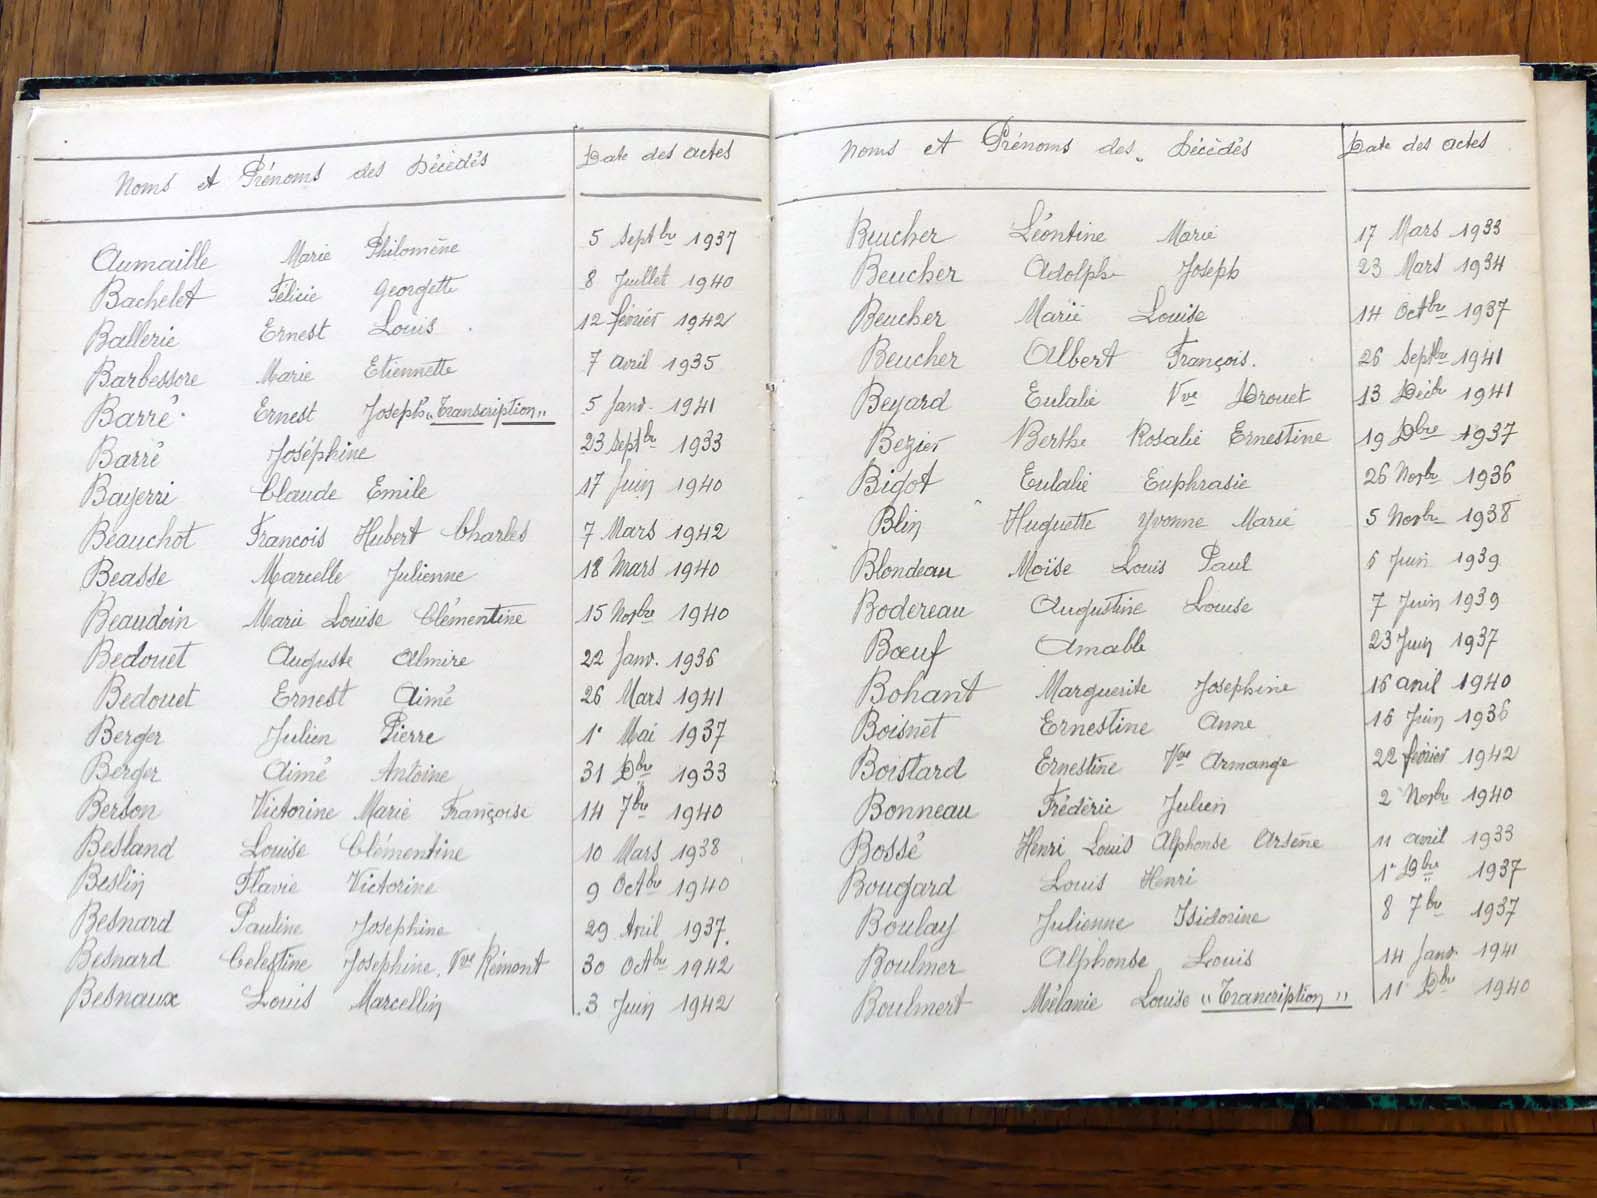 Noms et Prénoms des Décédés Date des actes
Aumaille Marie Philomène 5 Septbre 1937
Bachelet Félicie Georgette 8 Juillet 1940
Ballerie Ernest Louis 12 février 1942
Barbessore Marie Etiennette 7 avril 1935
Barré Ernest Joseph "Transcription" 5 Janv. 1941
Barré Joséphine 23 Septbre 1933
Bayerri Claude Emile 17 Juin 1940
Beauchot Francois Hubert Charles 7 Mars 1942
Beasse Marcelle Julienne 18 Mars 1940
Beaudoin Marie Louise Clémentine 15 Novbre 1940
Bedouet Auguste Almire 22 Janv. 1936
Bedouet Ernest Aimé 26 Mars 1941
Berger Julien Pierre 1er Mai 1937
Berger Aimé Antoine 31 Dbre 1933
Berson Victorine Marie Françoise 14 7bre 1940
Besland Louise Clémentine 10 Mars 1938
Beslin Flavie Victorine 9 Octbre 1940
Besnard Pauline Josephine 29 Avril 1937
Besnard Celestine Josephine. Vve Rémont 30 Octbre 1942
Besnaux Louis Marcellin 3 Juin 1942
Noms et Prénoms des Décédés Date des actes
Beucher Léontine Marie 17 Mars 1933
Beucher Adolphe Joseph 23 Mars 1934
Beucher Marie Louise 14 Octbre 1937
Beucher Albert François. 26 Septbre 1941
Beyard Eulalie Vve Drouet 13 Décbre 1941
Bezier Berthe Rosalie Ernestine 19 Dbre 1937
Bigot Eulalie Euphrasie 26 Novbre 1936
Blin Huguette Yvonne Marie 5 Novbre 1938
Blondeau Moïse Louis Paul 6 Juin 1939
Bodereau Augustine Louise 7 Juin 1939
Bœuf Amable 23 Juin 1937
Bohant Marguerite Josephine 16 avril 1940
Boisnet Ernestine Anne 16 Juin 1936
Boistard Ernestine Vve Armange 22 février 1942
Bonneau Frédéric Julien 2 Novbre 1940
Bossé Henri Louis Alphonse Arsène 11 avril 1933
Bougard Louis Henri 1er Dbre 1937
Boulay Julienne Isidorine 8 7bre 1937
Boulmer Alphonse Louis 14 Janv. 1941
Boulmert Mélanie Louise "Trancription" 11 Dbre 1940